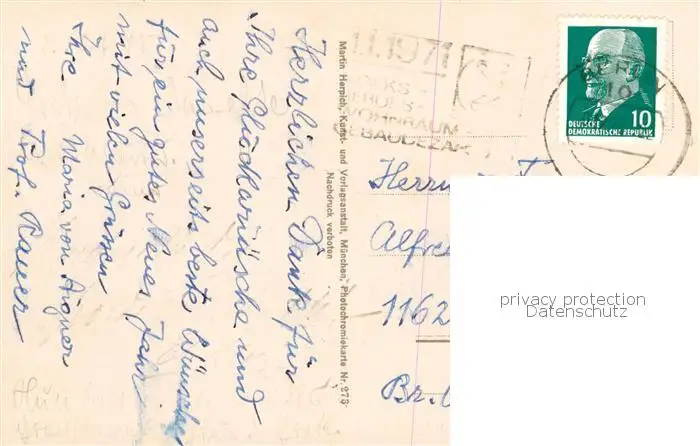 Herzlichen Dank für
Ihre Glückwünsche und
auch unserseits beste Wünsche
für ein gutes Neues Jahr
mit vielen Grüssen
Ihre Maria von Aigner
und Prof. Rauer
Martin Herpich, Kunst- und Verlagsanstalt, München, Photochromiekarte Nr. 273
Nachdruck verboten
1.1.1971
WOHNRAUM-
BERLIN
10
DEUTSCHE
DEMOKRATISCHE REPUBLIK
Herrn
Alfre
1162
Br.
privacy protection
Datenschutz